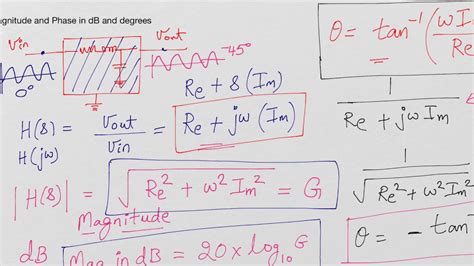 agnitude and Phase in dB and degrees
Vin
Vout
-45°
0°
Re + s (Im)
H(s) = Vout / Vin = Re + jω (Im)
H(jω)
|H(s)| = √(Re² + ω² Im²) = G
Magnitude
dB
Mag in dB = 20 × log₁₀ G
θ = tan⁻¹ (ω I / Re
1 / Re + jω Im
1 / √(Re² + ω² Im²
θ = - tan